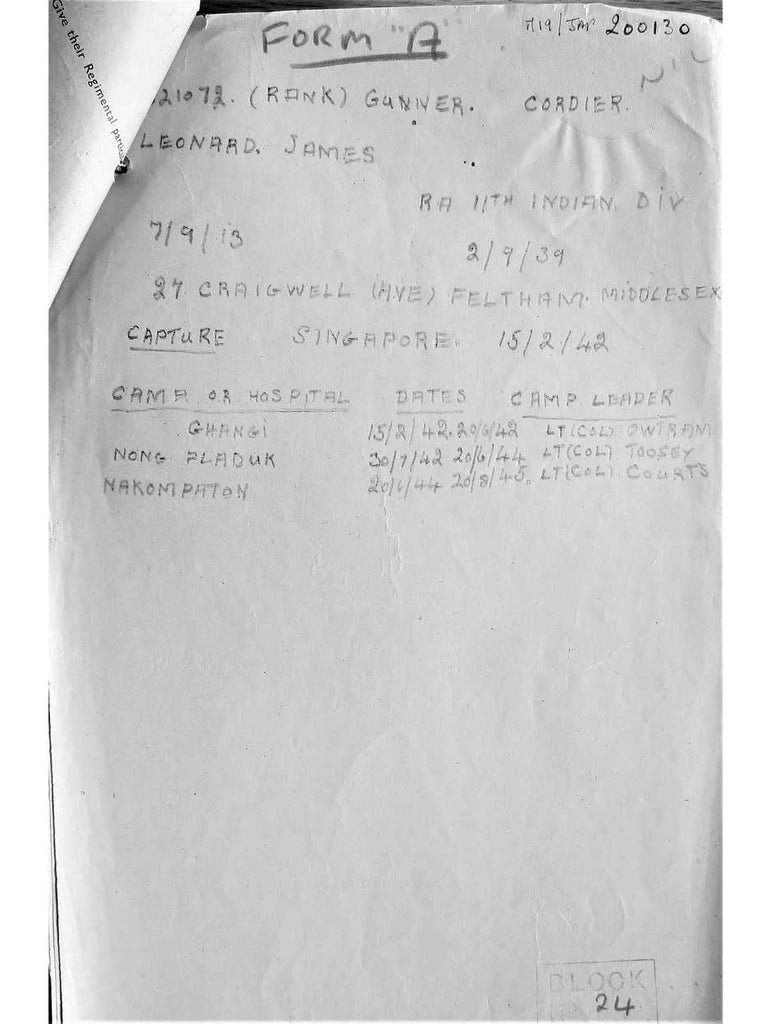 Give their Regimental partic
FORM "A" M19/JAP 200130
21072. (RANK) GUNNER. CORDIER.
LEONARD. JAMES
RA 11TH INDIAN. DIV
7/9/13 2/9/39
27 CRAIGWELL (AVE) FELTHAM. MIDDLESEX
CAPTURE SINGAPORE. 15/2/42
CAMP. OR HOSPITAL DATES CAMP LEADER
GHANGI 15/2/42. 20/6/42 LT(COL) OWTRAM
NONG PLADUK 30/7/42 20/6/44 LT(COL) TOOSEY
NAKOMPATON 20/6/44 20/8/45. LT(COL) COURTS
BLOCK
24